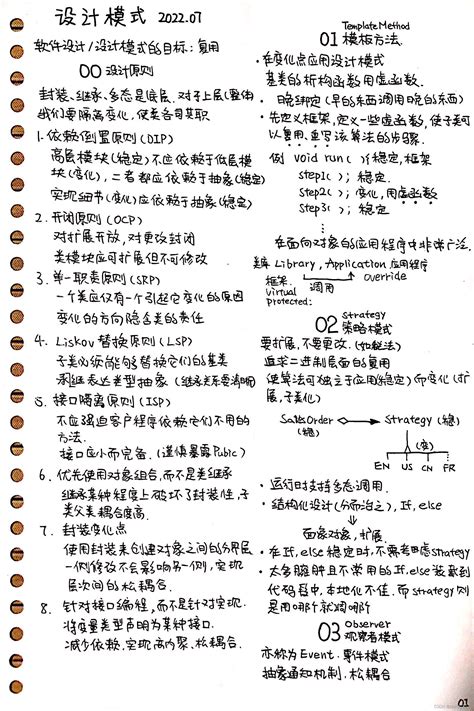 设计模式 2022.07
软件设计/设计模式的目标:复用
00 设计原则
封装、继承、多态是底层.对于上层(整体)
我们要隔离变化,使各自同职
1.依赖倒置原则(DIP)
高层模块(稳定)不应依赖于低层模
块(变化),二者都应依赖于抽象(稳定)
实现细节(变化)应依赖于抽象(稳定)
2.开闭原则(OCP)
对扩展开放,对更改封闭
类模块应可扩展但不可修改
3.单一职责原则(SRP)
一个类应仅有一个引起它变化的原因
变化的方向隐含类的责任
4.Liskov替换原则(LSP)
子类必须能够替换它们的基类
承继表达类型抽象(继承关系要清晰明)
5.接口隔离原则(ISP)
不应强迫客户程序依赖它们不用的
方法.
接口应小而完备.(谨慎暴露Public)
6.优先使用对象组合,而不是类继承
继承某种程度上破坏了封装性,子
类父类耦合度高.
7.封装变化点
使用封装来创建对象之间的分界层
一侧修改不会影响另一侧,实现
层次间的松耦合.
8.针对接口编程,而不是针对实现.
将变量类型声明为某种接口.
减少依赖,实现高内聚、松耦合.
Template Method
01 模板方法.
·在变化点应用设计模式
基类的析构函数用虚函数.
·晚绑定(早的东西调用晚的东西)
·先定义框架,定义一些虚函数,使子类可
以复用.重写该算法的步骤.
例 void run( ){稳定,框架
step1( ); 稳定.
step2( ); 变化,用虚函数
step3( ); 稳定
}
在面向对象的应用程序中非常广泛.
类库 Library, Application 应用程序
框架. 调用 override
virtual
protected:
02 Strategy
策略模式
要扩展,不要更改.(如税法)
追求二进制层面的复用
使算法可独立于应用(稳定)而变化(扩
展,子类化)
SalesOrder Strategy (稳)
(稳)
(变)
EN US CN FR
·运行时支持多态调用.
·结构化设计(分而治之),If,else
面象对象,扩展.
·在If,else稳定时,不需考虑strategy
·太多臃肿且不常用的If,else装载到
代码段中,本地化不佳.而strategy则
是用哪个就调哪个
03 Observer
观察者模式
亦称为Event·事件模式
抽象通知机制.松耦合
01